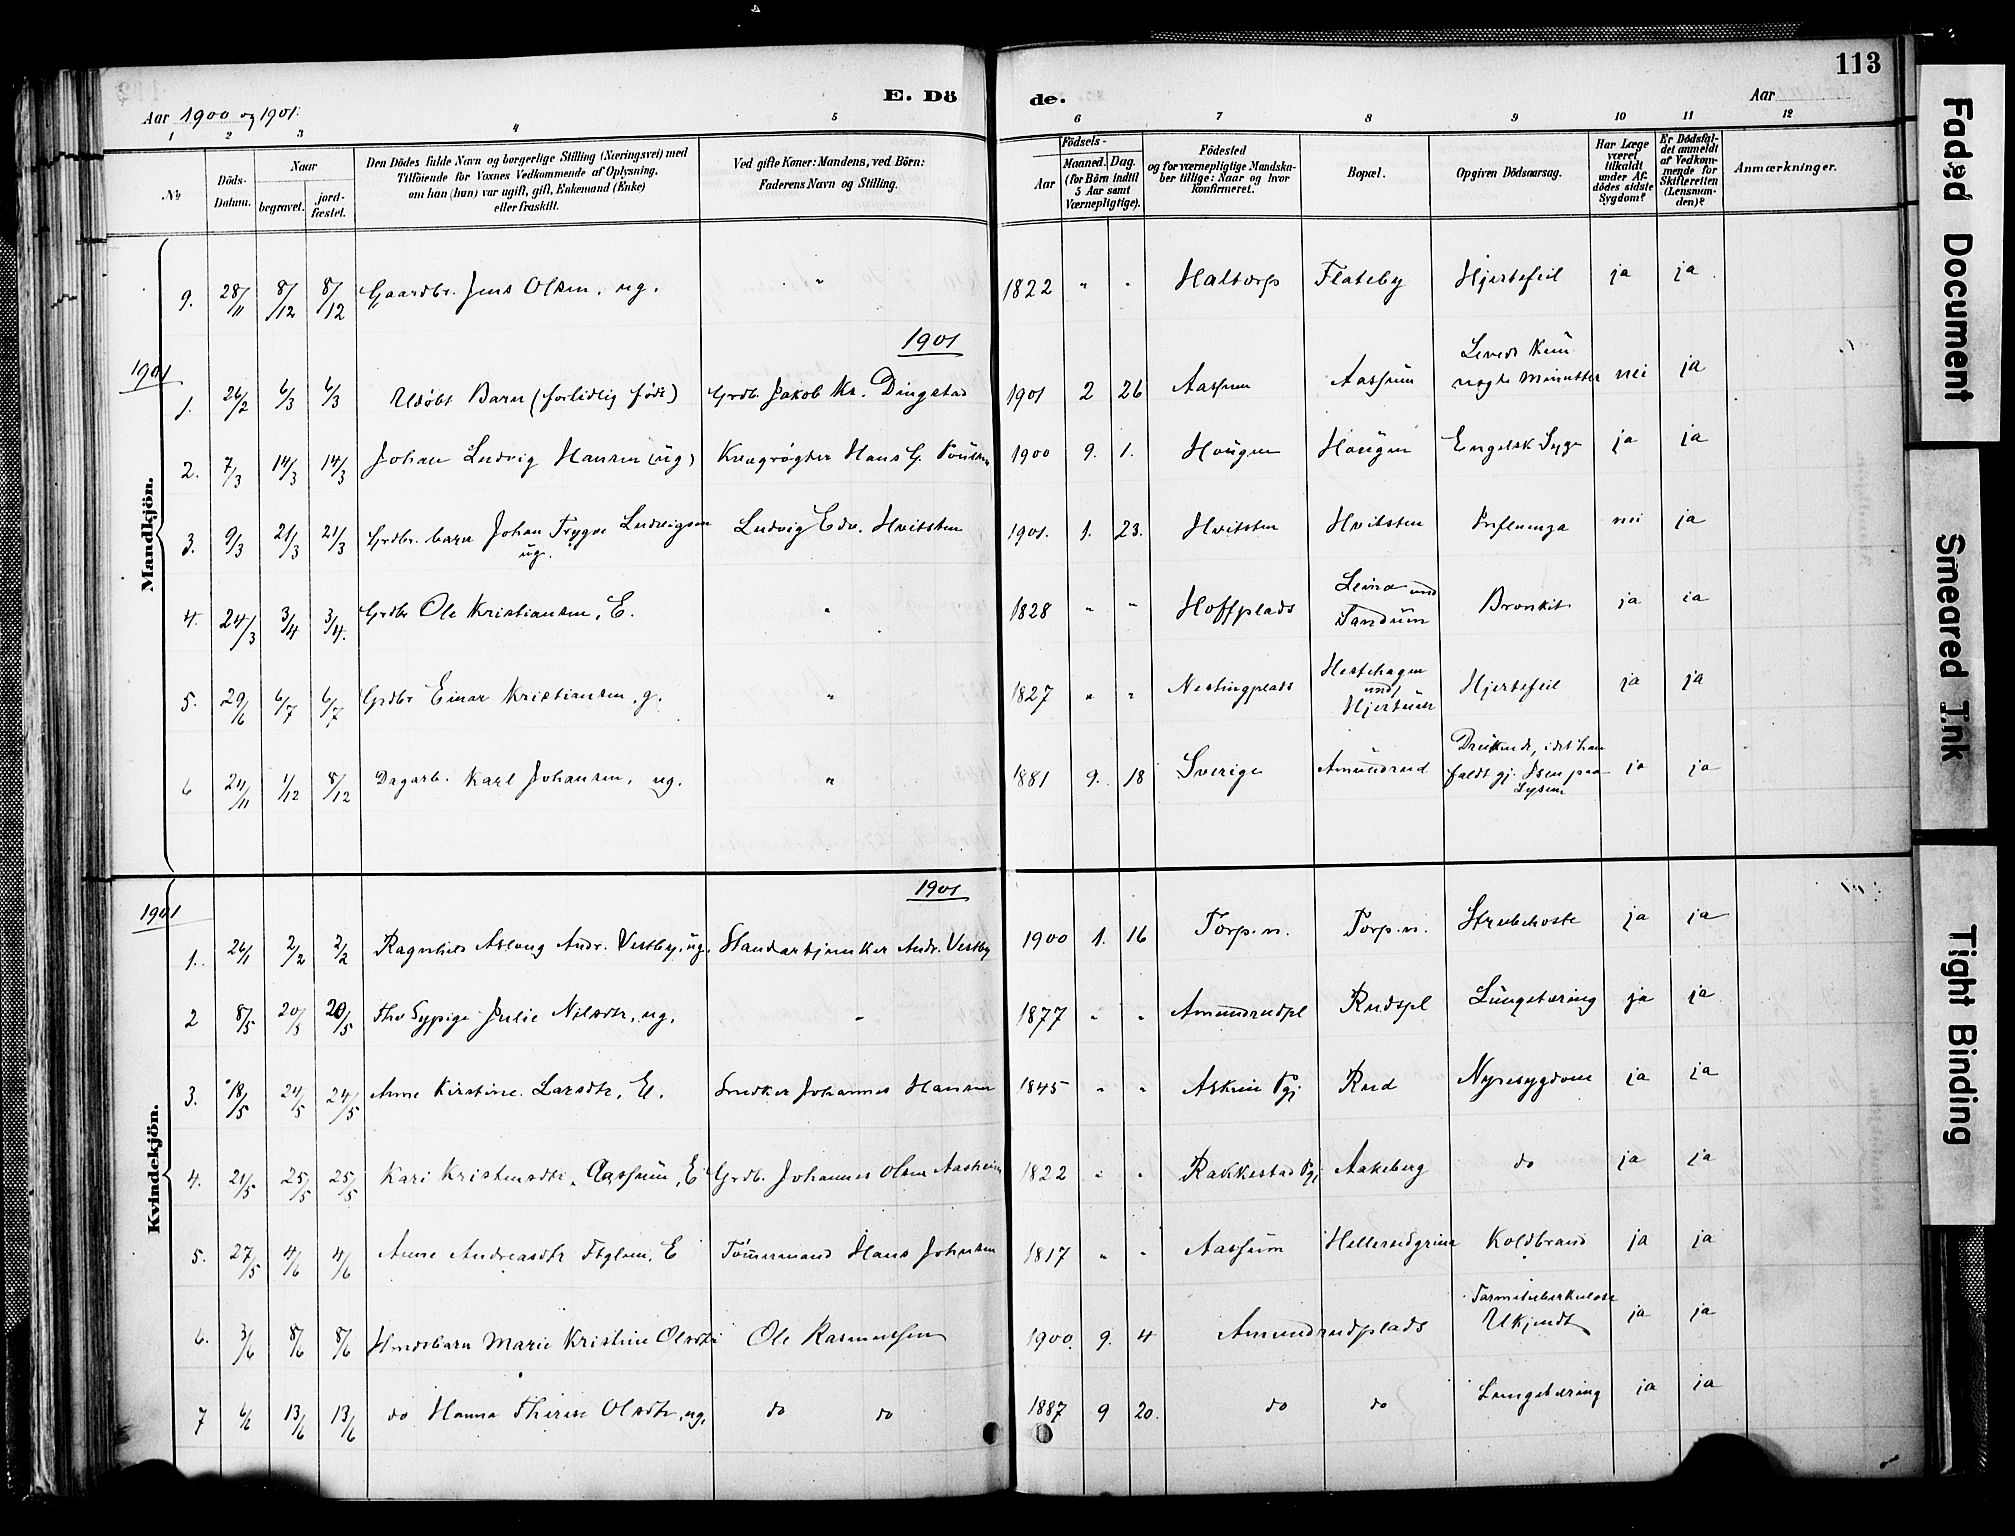 113
E. Döde.
Aar 1900 og 1901.
Aar
1 2 3 4 5 6 7 8 9 10 11 12
No
Döds-Datum.
Naar
begravet.
jordfæstet.
Den Dödes fulde Navn og borgerlige Stilling (Næringsvei) med Tilföiende for Voxnes Vedkommende af Oplysning, om han (hun) var ugift, gift, Enkemand (Enke) eller fraskilt.
Ved gifte Koner: Mandens, ved Börn: Faderens Navn og Stilling.
Födsels-
Aar
Maaned. Dag.
(for Börn indtil 5 Aar samt Værnepligtige).
Födested
og for værnepligtige Mandskaber tillige: Naar og hvor konfirmeret.
Bopæl.
Opgiven Dödsaarsag.
Har Læge været tilkaldt under Afdödes sidste Sygdom?
Er Dödsfaldet anmeldt af Vedkommende for Skifteretten (Lensmanden)?
Anmærkninger.
Mandkjön.
9. 28/11 8/12 8/12 Gaardbr. Jens Olsen, ug. " 1822 " " Haltorp Flateby Hjertefeil ja ja
1901
1901
1. 26/2 6/3 6/3 Udøbt Barn (forlidlig født) Grdb. Jakob Kr. Dingstad 1901 2 26 Aassum Aassum Levede kun nogle Minutter nei ja
2. 7/3 14/3 14/3 Johan Ludvig Hansen (ug) Kvægrøgter Hans G. 1900 9. 1. Hougen Hougen Engelsk Syge ja ja
3. 9/3 21/3 21/3 Grdbr. barn Johan Trygve Ludvigsen ug. Ludvig Edv. Hvitsten 1901. 1. 23. Hvitsten Hvitsten Influenza nei ja
4. 24/3 3/4 3/4. Grdbr Ole Kristiansen, E. " 1828 " " Hoffplads und Sandum Bronkit ja ja
5. 29/6 6/7 6/7 Grdbr Einar Kristiansen, g. " 1827 " " Nestingplads Hestehagen und Hjertefeil ja ja
6 24/11 1/12 8/12 Dagarb. Karl Johansen, ug. " 1881 9. 18 Sverige Amundrud Druknede, idet han faldt gj. Isen paa Lysern ja ja
Kvindekjön.
1901
1901
1. 26/1 2/2 2/2 Ragnhild Aslaug Andr. Vestby, ug. Standartjunker Andr. Vestby 1900 1. 16 Torp. n. Torp. n. Strubehoste ja ja
2 8/5 20/5 20/5 Julie Nilsdtr, ug. " 1877 " " Amundrudpl Rudspl Lungetæring ja ja
3. 18/5 24/5 24/5 Anne Kirstine Larsdtr, E. Snedker Johannes Hansen 1845 " " Askim Pgj Rud Nyresygdom ja ja
4. 21/5 25/5 25/5 Kari Kristensdtr. Aassum, E Grdb. Johannes Olsen Aasheim 1822 " " Rakkestad Pgj Aakeberg do ja ja
5. 27/5 4/6 4/6 Anne Andreasdtr, E Tømmermand Hans Johnsen 1817 " " Aassum Koldbrand ja ja
6. 3/6 8/6 8/6 Hmdsbarn Marie Kristine Olsdtr Ole Rasmussen 1900. 9. 4 Amundrudplads Tarmtuberkulose Ukjendt ja ja
7 6/6 13/6 13/6 do Hanna Therese Olsdtr, ug. do do 1887 9 20. do do Lungetæring ja ja
Faded Document
Smeared Ink
Tight Binding